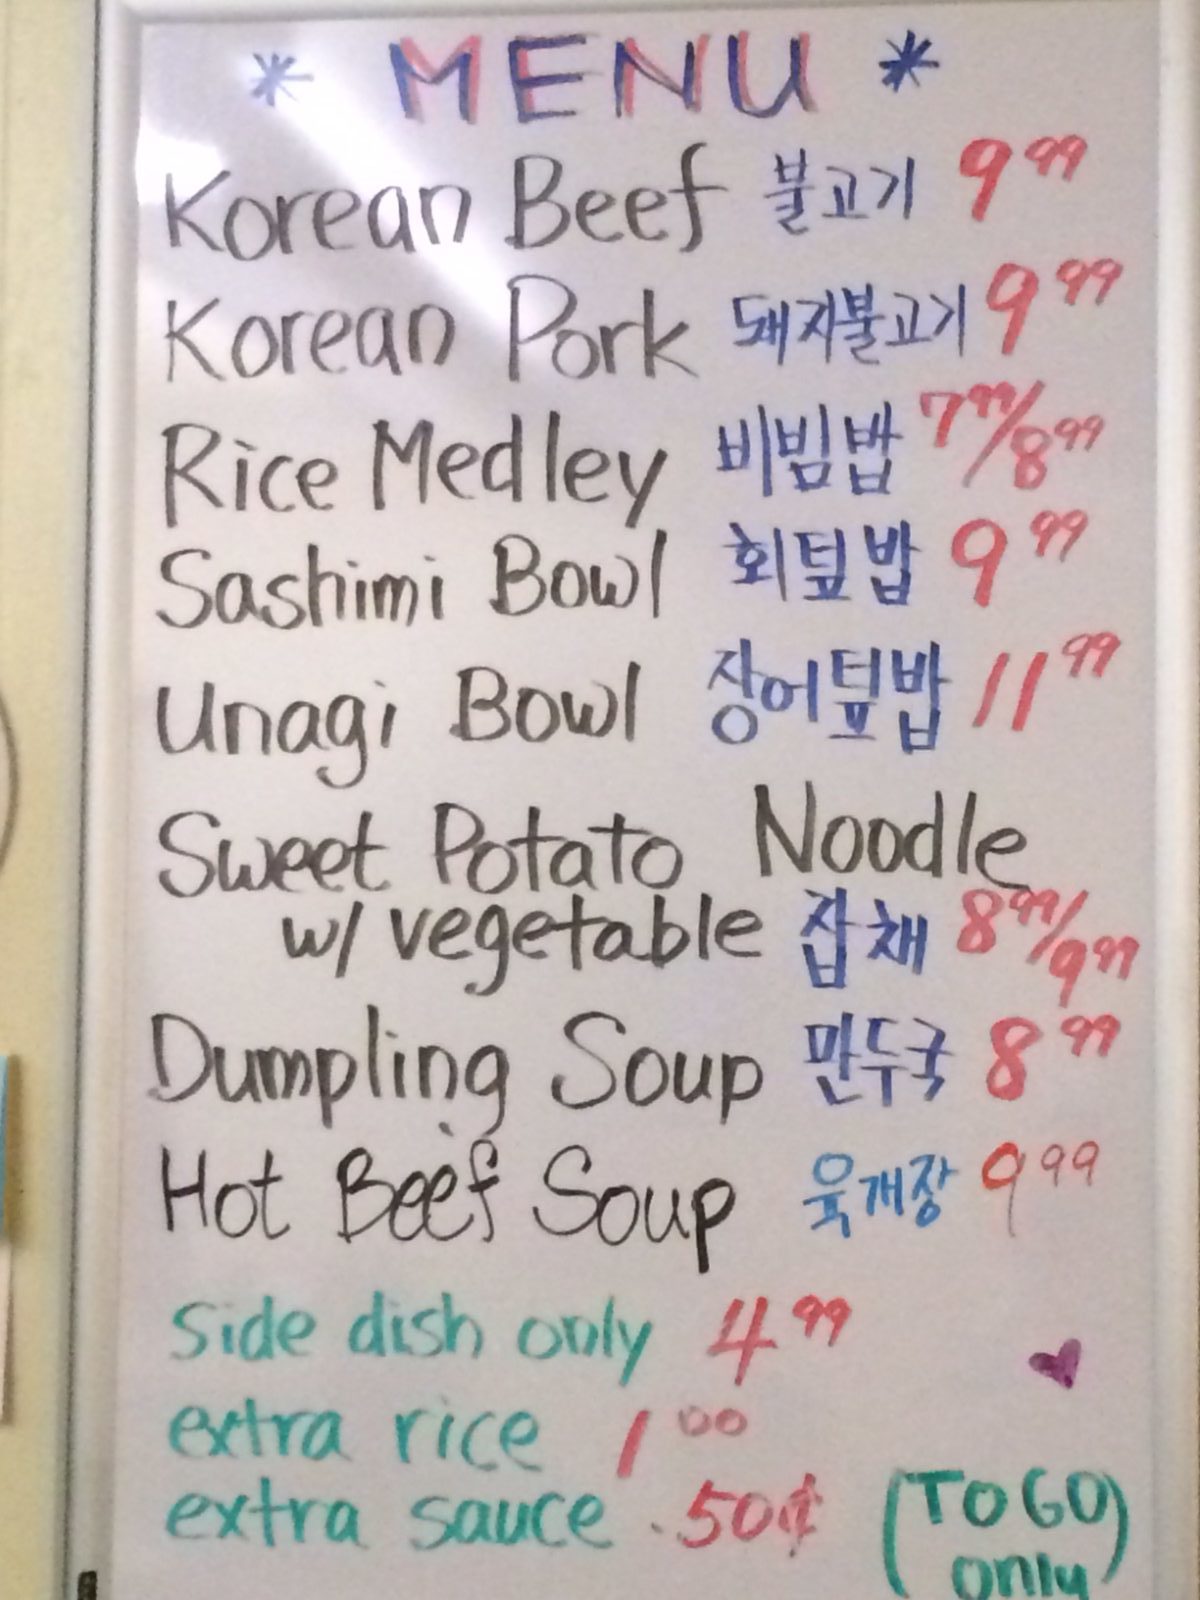 * MENU *
Korean Beef 불고기 9.99
Korean Pork 돼지불고기 9.99
Rice Medley 비빔밥 7.99/8.99
Sashimi Bowl 회덮밥 9.99
Unagi Bowl 장어덮밥 11.99
Sweet Potato Noodle
w/ vegetable 잡채 8.99/9.99
Dumpling Soup 만두국 8.99
Hot Beef Soup 육개장 9.99
Side dish only 4.99
extra rice 1.00
extra sauce .50¢
(TO GO
only)